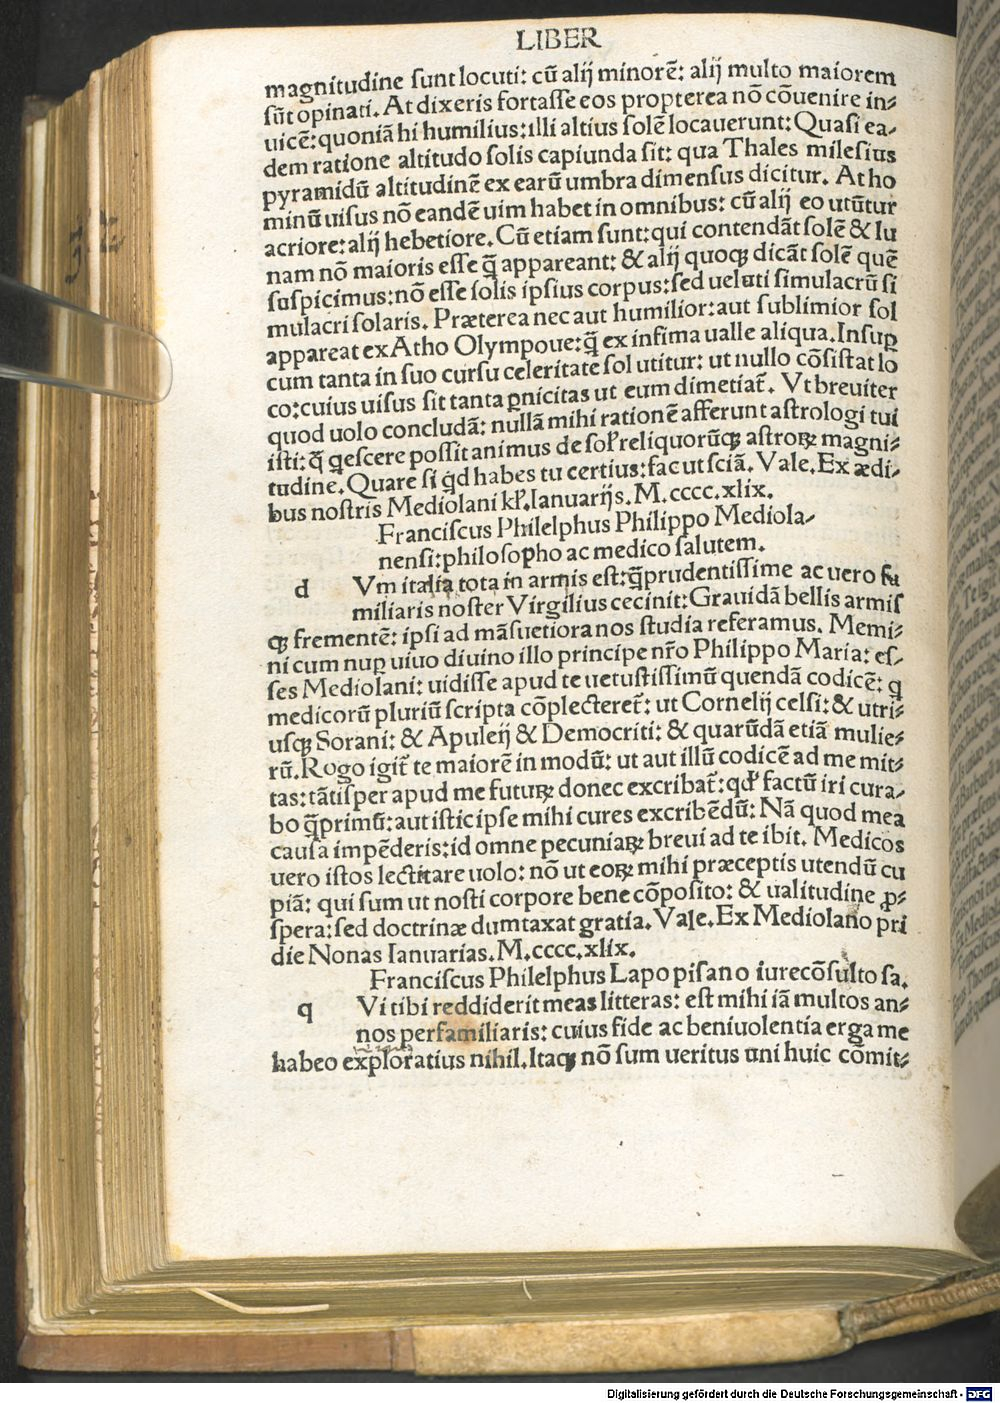 LIBER
magnitudine sunt locuti: cū alij minorē: alij multo maiorem
sūt opinati. At dixeris fortasse eos propterea nō cōuenire in-
uicē: quoniā hi humilius: illi altius solē locauerunt: Quasi ea-
dem ratione altitudo solis capiunda sit: qua Thales milesius
pyramidū altitudinē ex earū umbra dimensus dicitur. At ho
minū uisus nō eandē uim habet in omnibus: cū alij eo utūtur
acriore: alij hebetiore. Cū etiam sunt: qui contendāt solē & lu
nam nō maioris esse q̄ appareant: & alij quoqꝫ dicāt solē quē
suspicimus: nō esse solis ipsius corpus: sed ueluti simulacrū si
mulacri solaris. Præterea nec aut humilior: aut sublimior sol
appareat ex Atho Olympoue: q̄ ex infima ualle aliqua. Insuꝑ
cum tanta in suo cursu celeritate sol utitur: ut nullo cōsistat lo
co: cuius uisus sit tanta ꝑnicitas ut eum dimetiat᷑. Vt breuiter
quod uolo concludā: nullā mihi rationē afferunt astrologi tui
isti: q̄ q̄escere possit animus de sol' reliquorūqꝫ astroꝝ magni-
tudine. Quare si qd habes tu certius: fac ut sciā. Vale. Ex ædi-
bus nostris Mediolani kl'. Ianuarijs. M.cccc.xlix.
Franciscus Philelphus Philippo Mediola-
nensi: philosopho ac medico salutem.
d Vm italia tota in armis est: q̄prudentissime ac uero fa
miliaris noster Virgilius cecinit: Grauidā bellis armis
qꝫ frementē: ipsi ad māsuetiora nos studia referamus. Memi-
ni cum nuꝑ uiuo diuino illo principe nr̄o Philippo Maria: es-
ses Mediolani: uidisse apud te uetustissimū quendā codicē: q
medicorū pluriū scripta cōplecteret᷑: ut Cornelij celsi: & utri-
usqꝫ Sorani: & Apuleij & Democriti: & quarūdā etiā mulie-
rū. Rogo igit᷑ te maiorē in modū: ut aut illū codicē ad me mit-
tas: tātisper apud me futuꝝ donec excribat᷑: qd' factū iri cura-
bo q̄primū: aut istic ipse mihi cures excribēdū: Nā quod mea
causa impēderis: id omne pecuniaꝝ breui ad te ibit. Medicos
uero istos lectitare uolo: nō ut eoꝝ mihi præceptis utendū cu
piā: qui sum ut nosti corpore bene cōposito: & ualitudine ꝓ-
spera: sed doctrinæ dumtaxat gratia. Vale. Ex Mediolano pri
die Nonas Ianuarias. M.cccc.xlix.
Franciscus Philelphus Lapo pisano iurecōsulto sa.
q Vi tibi reddiderit meas litteras: est mihi iā multos an-
nos perfamiliaris: cuius fide ac beniuolentia erga me
habeo exploratius nihil. Itaqꝫ nō sum ueritus uni huic cōmit-
Digitalisierung gefördert durch die Deutsche Forschungsgemeinschaft - DFG